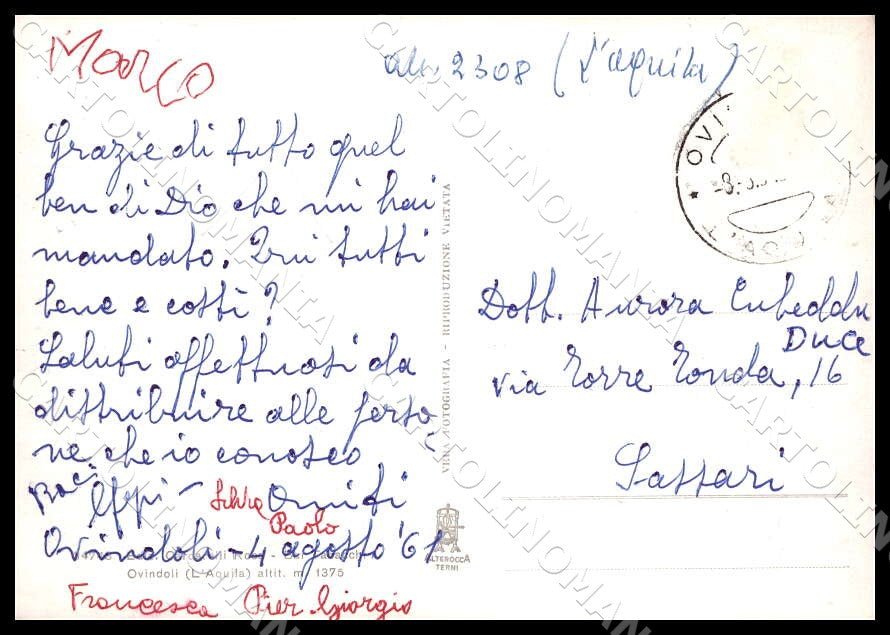 Marco
2308 (L'Aquila)
Grazie di tutto quel
ben di Dio che mi hai
mandato. Qui tutti
bene e costì?
Saluti affettuosi da
distribuire alle perso-
ne che io conosco
Baci
Silvia
Paolo
Ovindoli - 4 agosto '61
Ovindoli (L'Aquila) altit. m. 1375
Francesca Pier Giorgio
VERA FOTOGRAFIA - RIPRODUZIONE VIETATA
ALTEROCCA
TERNI
OVI
L'AQU
Dott. Aurora Cubeddu
Duce
via Torre Tonda, 16
Sassari
CARTOLINOMANIA